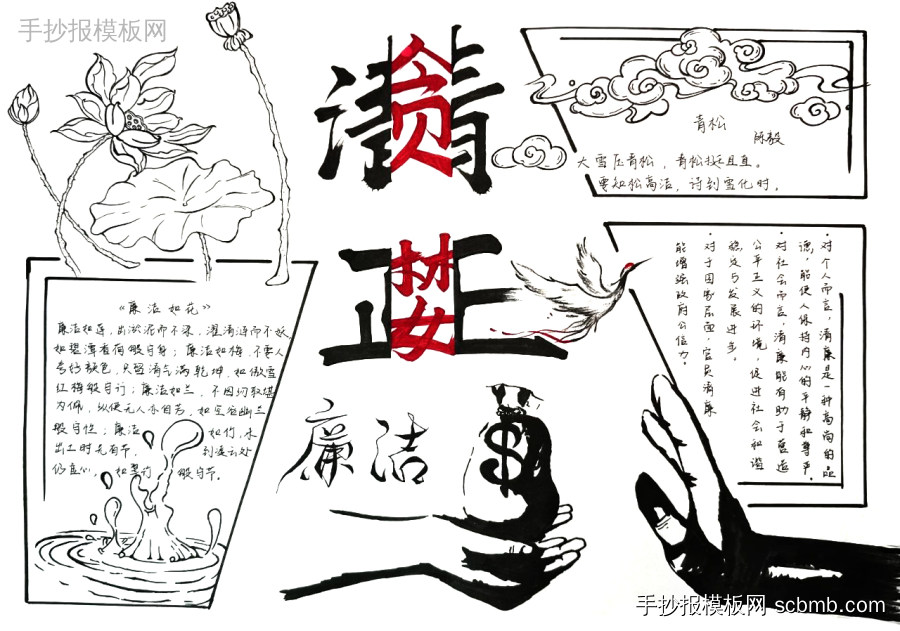 手抄报模板网
清
贪
正
婪
廉洁
$
青松
陈毅
大雪压青松，青松挺且直。
要知松高洁，待到雪化时。
·对个人而言，清廉是一种高尚的品
德，能使人保持内心的平静和尊严。
·对社会而言，清廉能有助于营造
公平正义的环境，促进社会和谐
稳定与发展进步。
·对于国家层面，官员清廉
能增强政府公信力。
《廉洁如花》
廉洁如莲，出淤泥而不染，濯清涟而不妖
如碧潭香荷般守身；廉洁如梅，不要人
夸好颜色，只留清气满乾坤，如傲雪
红梅般守行；廉洁如兰，不因纫取堪
为佩，纵使无人亦自芳，如空谷幽兰
般守性；廉洁如竹，未
出土时先有节，到凌云处
仍虚心，如翠竹般守节。
手抄报模板网 scbmb.com